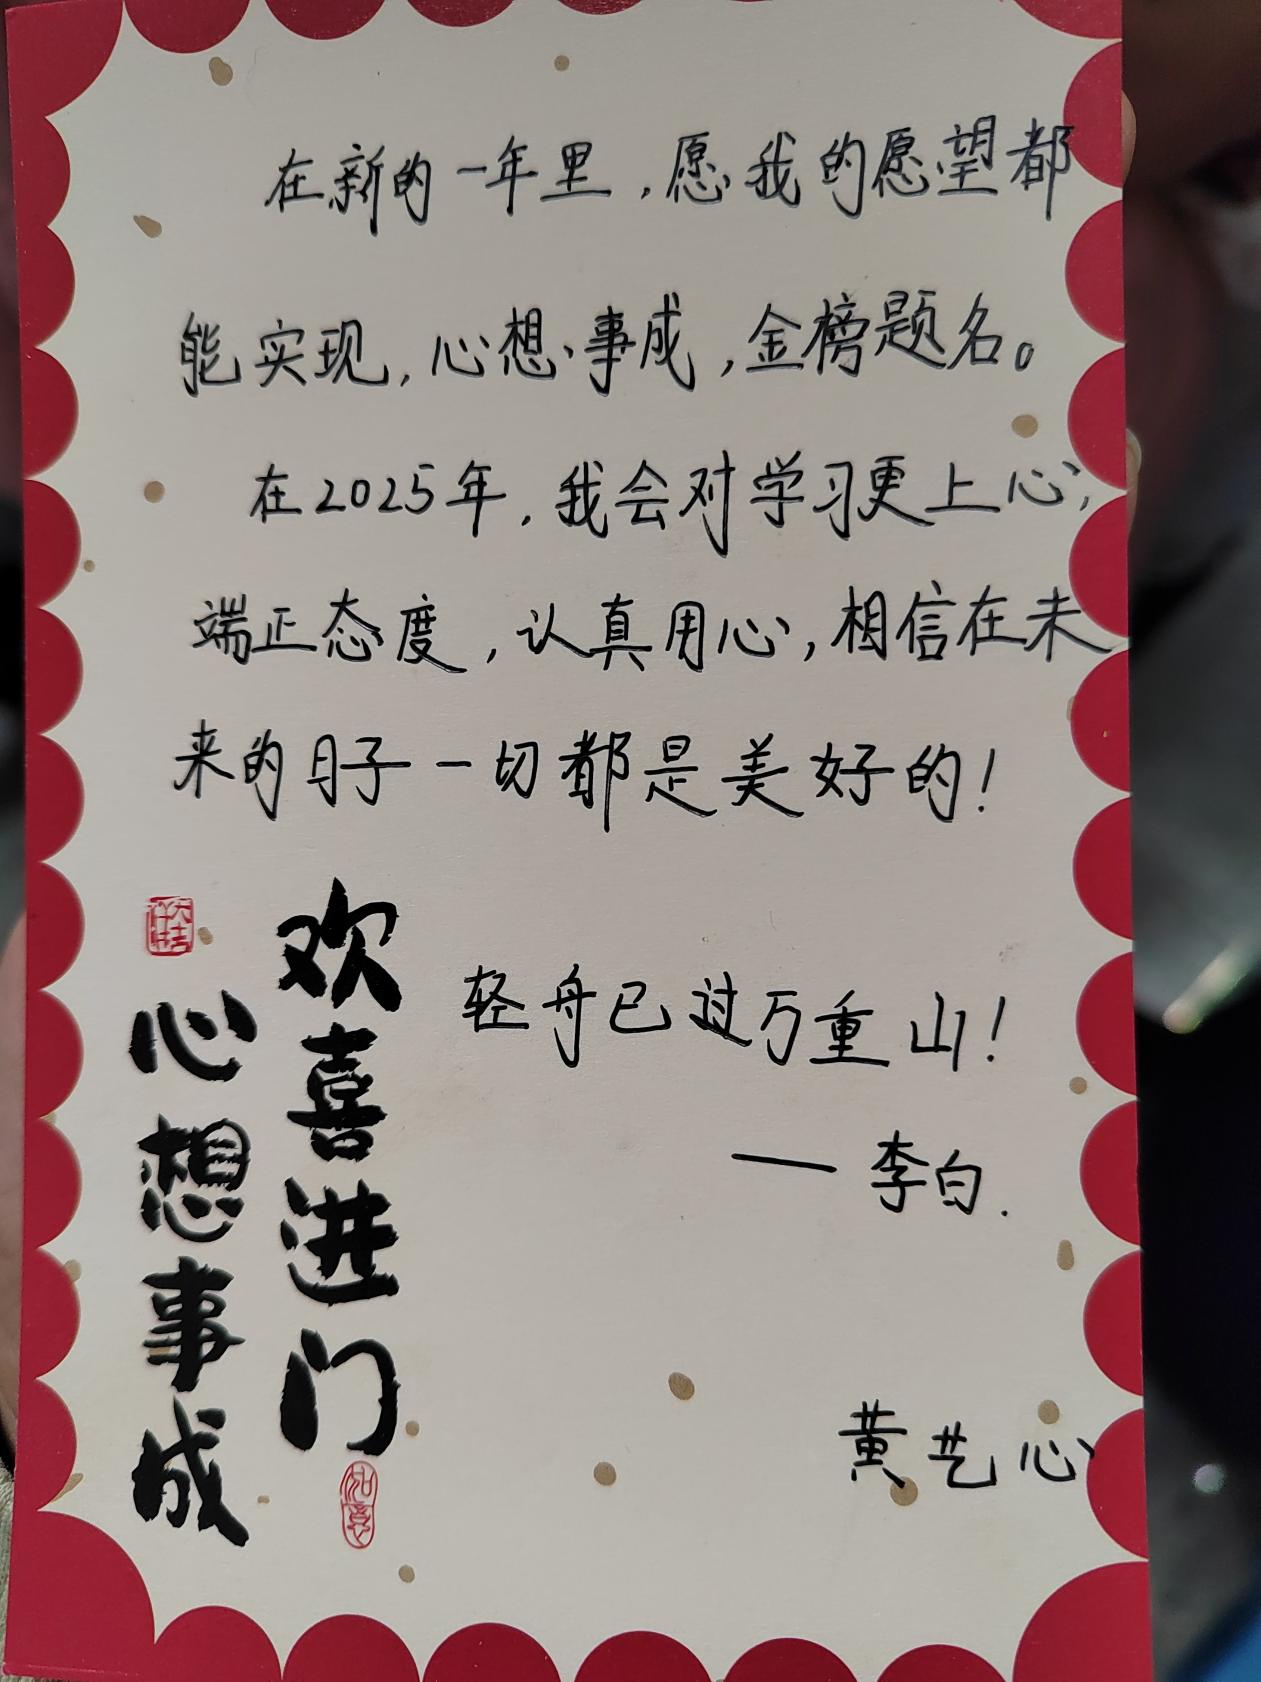 在新的一年里，愿我的愿望都
能实现，心想事成，金榜题名。
在2025年，我会对学习更上心，
端正态度，认真用心，相信在未
来的日子一切都是美好的！
轻舟已过万重山！
——李白.
黄艺心
欢喜进门
如意
心想事成